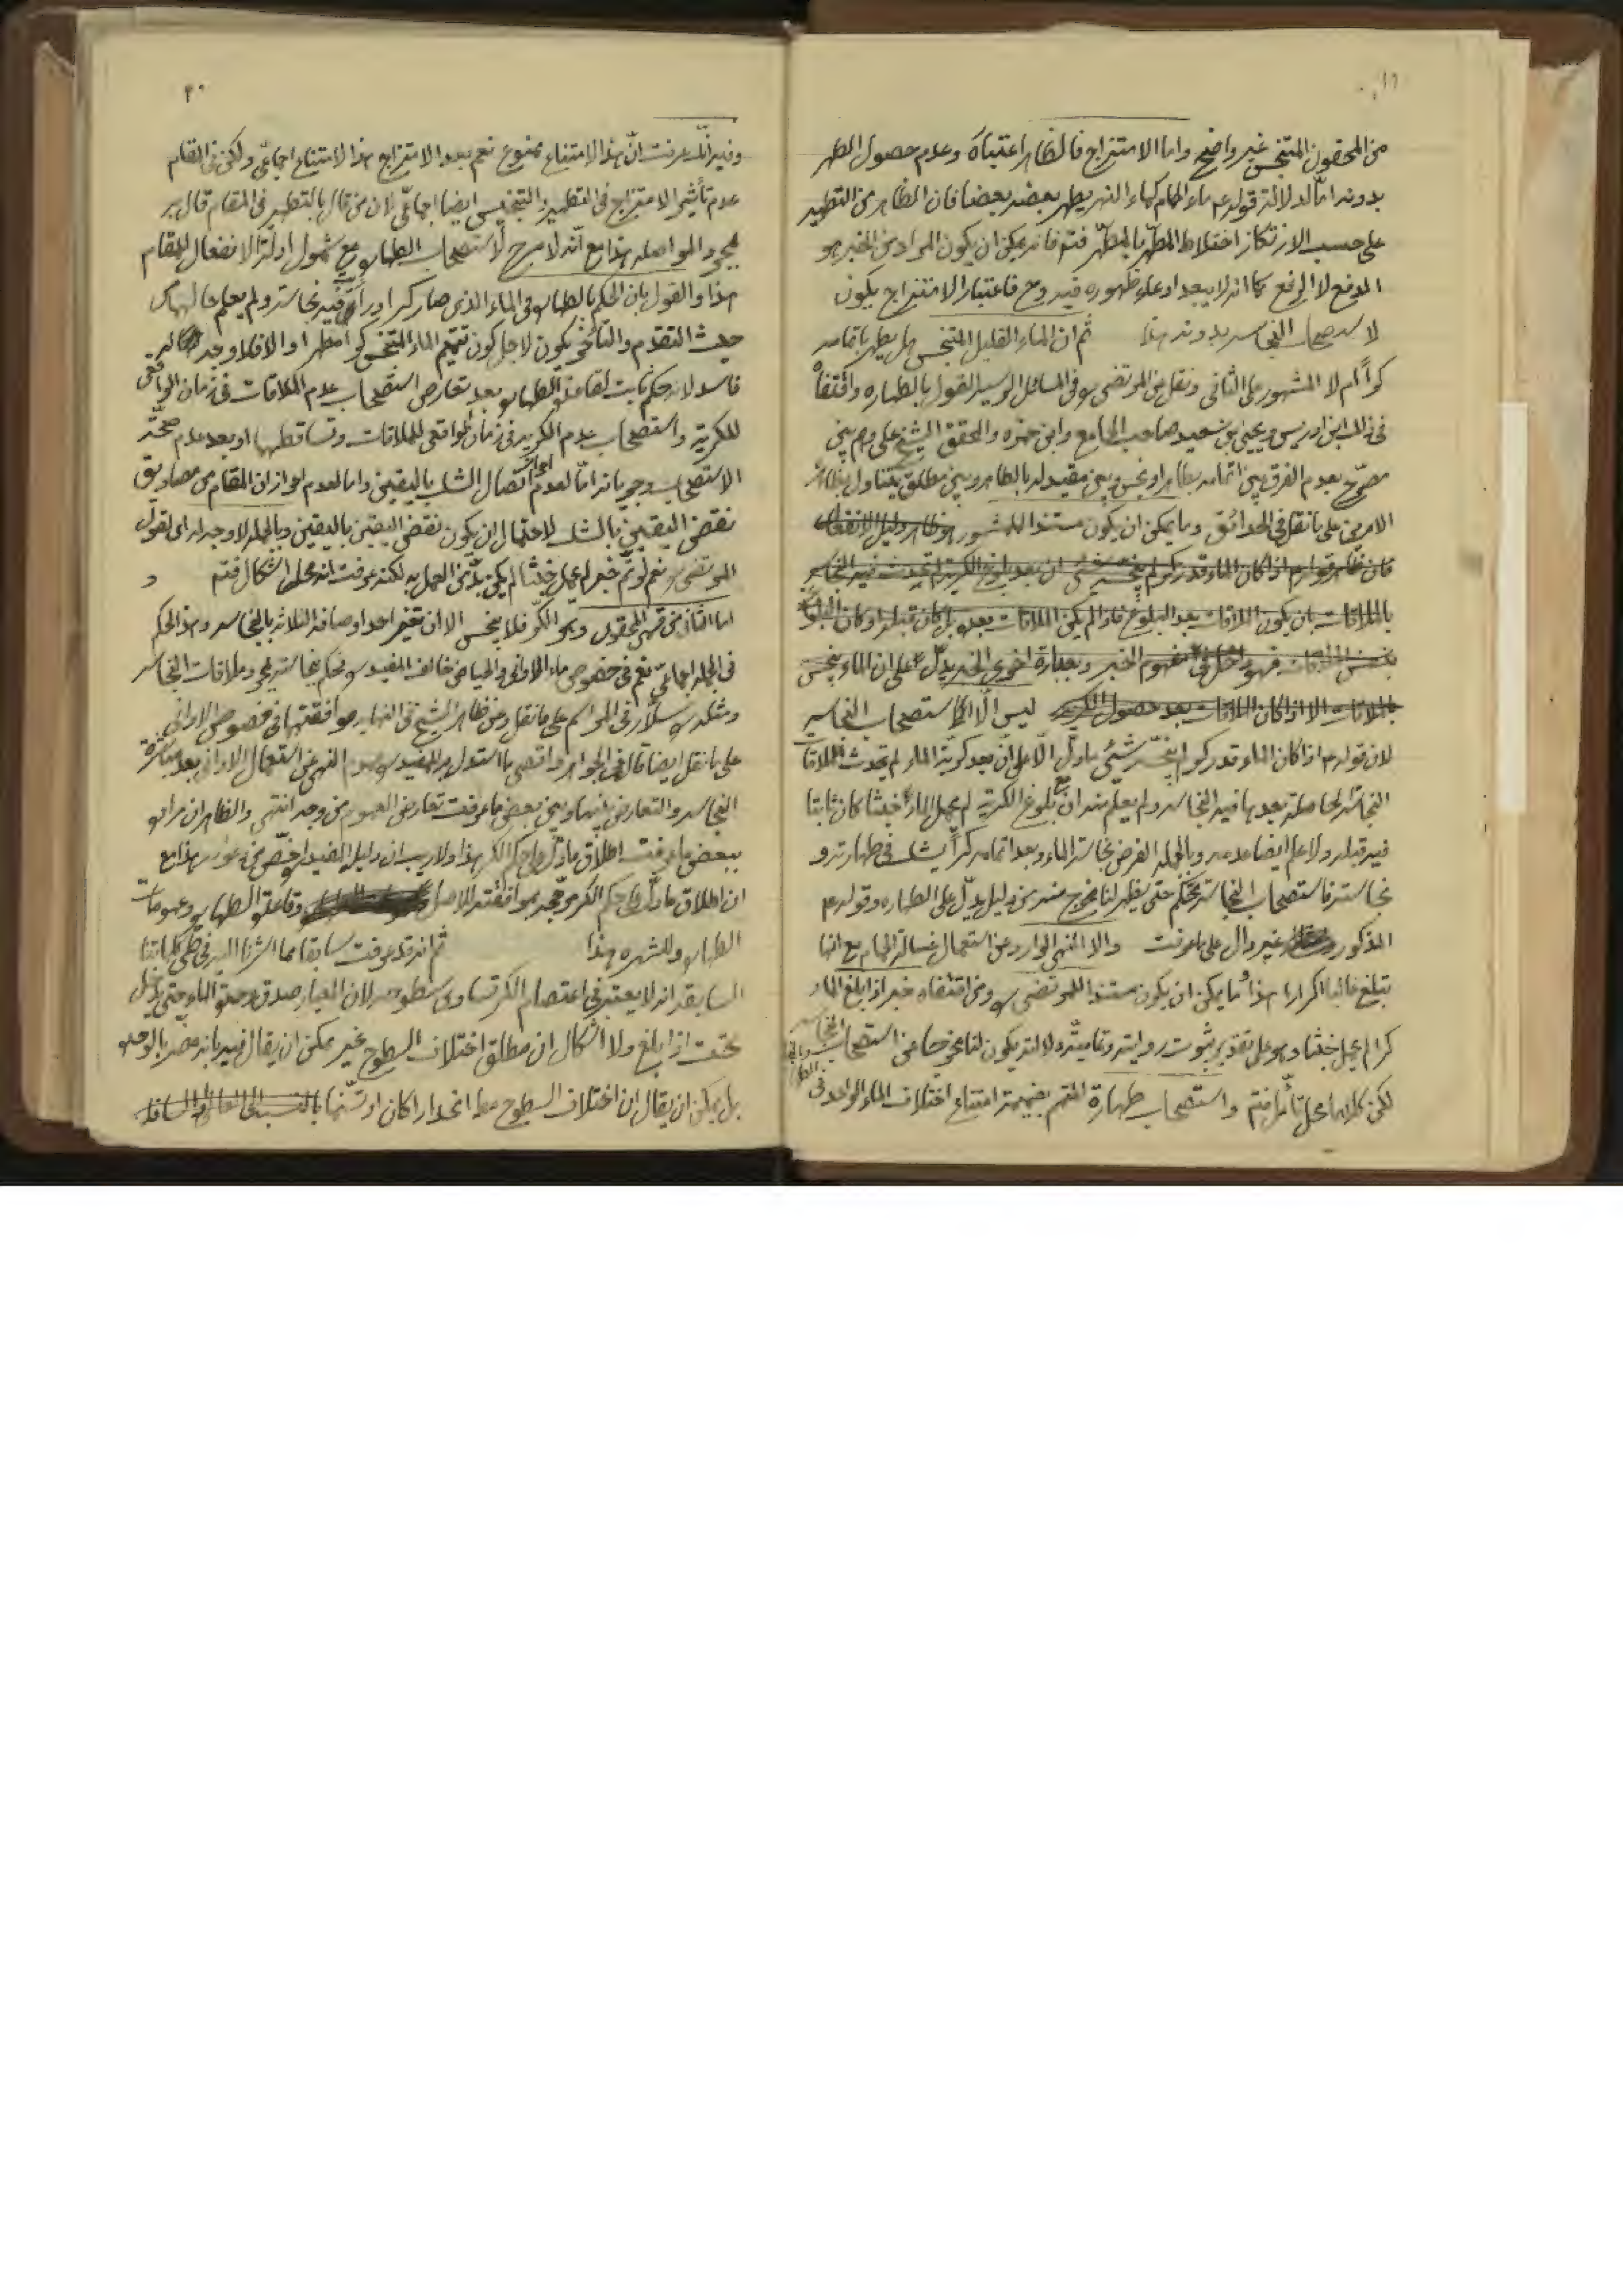 من المحقون المتنجس غير واضح واما الامتزاج فالظاهر اعتباره وعدم حصول الطهر
بدونه اما لدلالة قوله ع ماء الحمام كماء النهر يطهر بعضه بعضا فان الظاهر من التطهير
على حسب الارتكاز اختلاط المطهر بالمطهر فتم فانه يمكن ان يكون المراد من الخبر هو
الدفع لا الرفع كما انه لا يبعد ادعاء ظهوره فيه وح فاعتبار الامتزاج يكون
لاستصحاب النجاسه بدونه هذا ثم ان الماء القليل المتنجس هل يطهر باتمامه
كرا ام لا المشهور على الثانى ونقل عن المرتضى ره فى المسائل الرسيه القول بالطهاره
فى ذلك ابن ادريس ويحيى بن سعيد صاحب الجامع وابن حمزه والمحقق الشيخ على وهم بين
مصرح بعدم الفرق بين اتمامه بطاهر او نجس وبين مقيد له بالطاهر وبين مطلق يتناول بظاهره
الامرين على ما نقل فى الحدائق وما يمكن ان يكون مستندا للمشهور
فان ظاهر قوله ع اذا كان الماء قدر كر لم ينجسه شئ ان بعد بلوغ الكرية لم تحدث فيه النجاسه
بالملاقات بان يكون الملاقات بعد البلوغ فاذا لم يكن الملاقات بعده بل كان قبله او كان البلوغ
بنفس الملاقات فهو داخل فى مفهوم الخبر وبعبارة اخرى الخبر يدل على ان الماء ينجس
بالملاقات الا اذا كان الملاقات بعد حصول الكرية ليس الا استصحاب النجاسه
لان قوله ع اذا كان الماء قدر كر لم ينجسه شئ ما دل الا على ان بعد كرية الماء لم تحدث الملاقات
النجاسة الحاصلة بعدها فيه النجاسه ولم يعلم منه ان بلوغ الكرية لم يحمل الماء خبثا كان ثابتا
فيه قبله ولا علم ايضا عدمه وبالجمله الفرض نجاسة الماء وبعد اتمامه كرا يشك فى طهارته و
نجاسته فاستصحاب النجاسة محكم حتى يظهر لنا مخرج منه من دليل يدل على الطهاره وقوله ع
المذكور غير دال على ما عرفت والا النهى الوارد عن استعمال غسالة الحمام مع انها
تبلغ غالبا اكرارا هذا وما يمكن ان يكون مستندا للمرتضى ره ومن اقتفاه خبر اذا بلغ الماء
كرا لم يحمل خبثا وهو على تقدير ثبوت روايته وتمامية دلالته يكون لنا مخرجا عن استصحاب النجاسه
لكن كلاهما محل تأمل فتم واستصحاب طهارة المتمم بضميمة امتناع اختلاف الماء الواحد فى
٢٠
وفيه انك عرفت ان هذا الامتناع ممنوع نعم بعد الامتزاج هذا الامتناع اجماعى ولكن فى المقام
عدم تأثير الامتزاج فى التطهير والتنجيس ايضا اجماعى لان من قال بالتطهير فى المقام قال به
بمجرد المواصله هذا مع انه لا مرجح لاستصحاب الطهاره مع شمول ادلة الانفعال للمقام
هذا والقول بان الحكم بالطهاره فى الماء الذى صار كرا ورأى فيه نجاسة ولم يعلم حالهما من
حيث التقدم والتأخر يكون لاجل كون تتميم الماء المتنجس كرا مطهرا والا فلا وجه له
فاسد لانه حكم ثابت لقاعدة الطهاره بعد تعارض استصحاب عدم الملاقات فى زمان الواقعى
للكرية واستصحاب عدم الكريه فى زمان الواقعى للملاقات وتساقطهما او بعد عدم صحة
الاستصحاب وجريانه اما لعدم احراز اتصال الشك باليقين واما لعدم احراز ان المقام من مصاديق
نقض اليقين بالشك لاحتمال ان يكون نقض اليقين باليقين وبالجمله لا وجه له اى لقول
المرتضى ره نعم لو تم خبر لم يحمل خبثا لم يكن بد من العمل به لكنه عرفت انه محل اشكال فتم و
اما الثانى من قسمى المحقون وهو الكر فلا ينجس الا ان تغير احد اوصافه الثلاثه بالنجاسه وهذا الحكم
فى الجمله اجماعى نعم فى خصوص ماء الاوانى والحياض خالف المفيد ره وحكم بنجاسته بمجرد ملاقات النجاسه
ومثله سلار فى المراسم على ما نقل وعن ظاهر الشيخ فى النهايه موافقتهما فى خصوص الاوانى
على ما نقل ايضا قال فى الجواهر واقصى ما استدل به للمفيد ره عموم النهى عن استعمال الاوانى بعد مباشرة
النجاسه والتعارض بينها وبين بعض ما عرفت تعارض العموم من وجه انتهى والظاهر ان مراده
ببعض ما عرفت اطلاق ما دل على حكم الكر هذا ولا ريب ان دليل المفيد اخص من هذا مع
ان اطلاق ما دل على حكم الكر مرجح بموافقته للاصل وقاعدة الطهاره وعمومات
الطهاره وللشهره هذا ثم انه قد عرفت سابقا مما اشرنا اليه فى طى كلماتنا
السابقه انه لا يعتبر فى اعتصام الكر تساوى سطوحه لان المعيار صدق وحدة الماء حتى يدخل
تحت اذا بلغ ولا اشكال ان مطلق اختلاف السطوح غير يمكن ان يقال فيه بانه مضر بالوحده
بل يمكن ان يقال ان اختلاف السطوح مط انحدارا كان او تسنما بالنسبة الى العالى والسافل